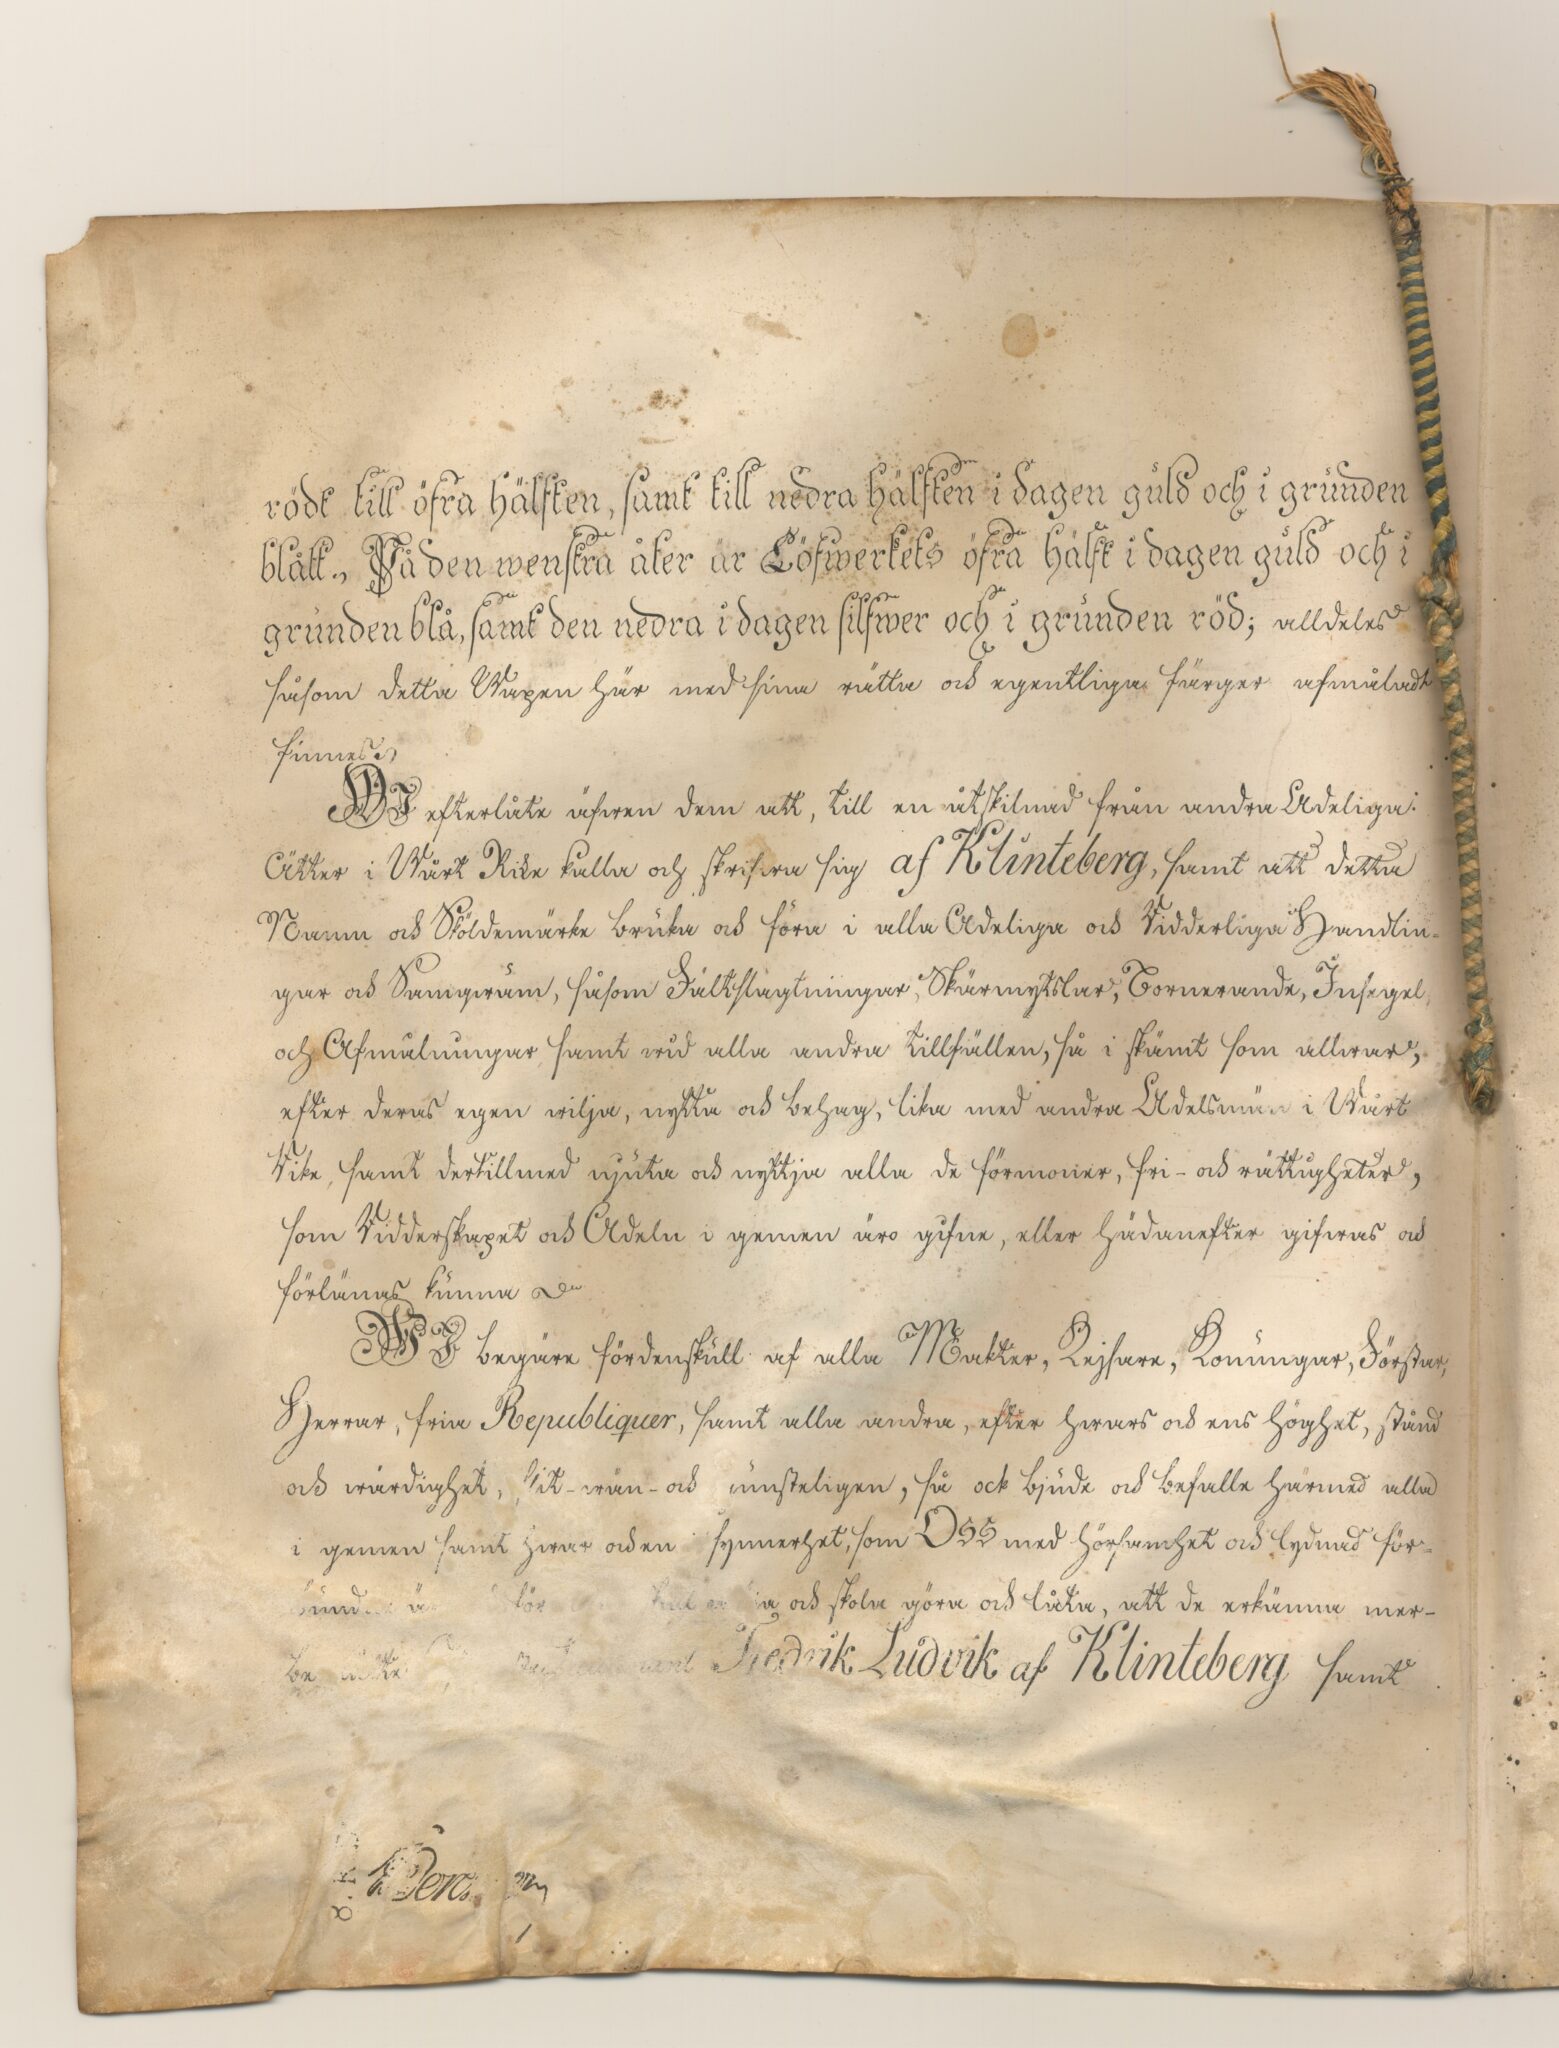 rödt till öfra hälften, samt till nedra hälften i dagen guld och i grunden
blått., På den wenstra åter är Löfwerkets öfra hälft i dagen guld och i
grunden blå, samt den nedra i dagen silfwer och i grunden röd; alldeles
såsom detta Wapen här med sina rätta och egentliga färger afmåladt
finnes.
WI efterlåte äfwen dem att, till en åtskilnad från andra Adeliga
Ätter i Wårt Rike kalla och skrifwa sig af Klinteberg, samt att detta
Namn och Sköldemärke bruka och föra i alla Adeliga och Ridderliga Handlin-
gar och Samqwäm, såsom Fältslagtningar, Skärmytslar, Tornerande, Insegel,
och Afmålningar samt wid alla andra tillfällen, så i skämt som allwar,
efter deras egen wilja, nytta och behag, lika med andra Adelsmän i Wårt
Rike, samt dertillmed njuta och nyttja alla de förmoner, fri- och rättigheter,
som Ridderskapet och Adeln i gemen äro gifne, eller hädanefter gifwas och
förlänas kunna
WI begäre fördenskull af alla Makter, Kejsare, Konungar, Förstar,
Herrar, fria Republiquer, samt alla andra, efter hwars och ens höghet, stånd
och wärdighet, flit-wän- och gunsteligen, så ock bjude och befalle härmed alla
i gemen samt hwar och en i synnerhet, som OSS med hörsamhet och lydnad för-
och skola göra och låta, att de erkänna mer-
Fredrik Ludvik af Klinteberg samt